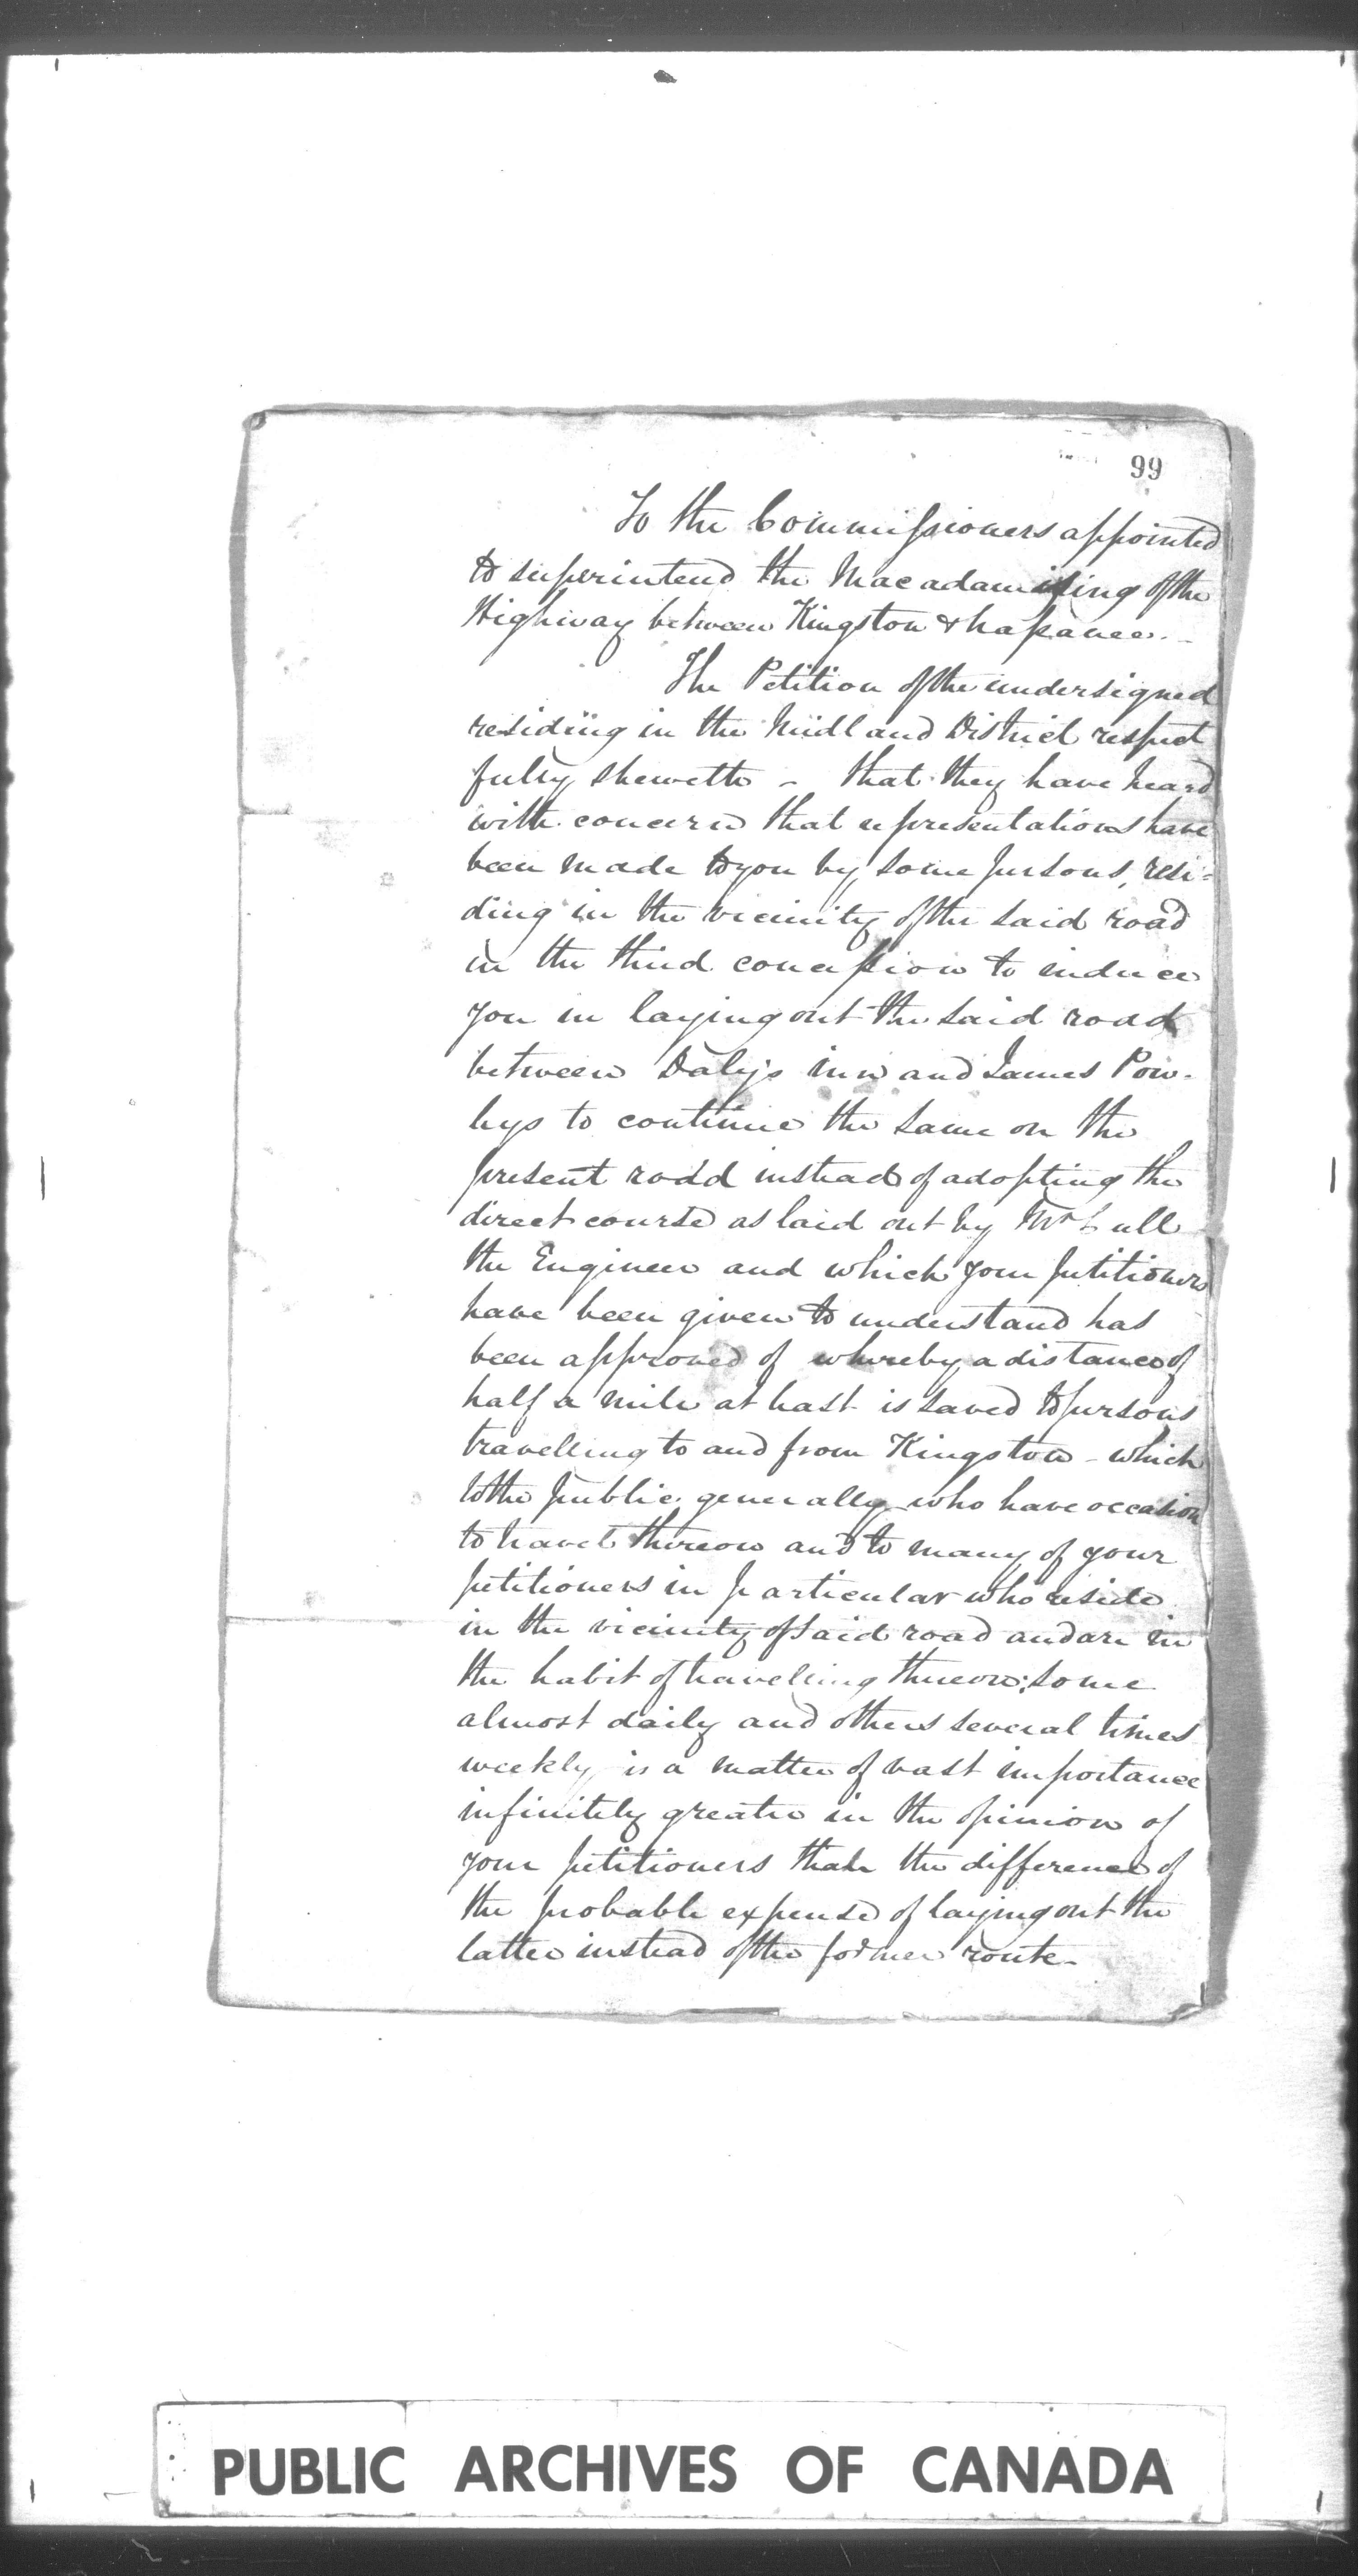 99
To the Commissioners appointed
to superintend the Macadamising of the
Highway between Kingston & Napanee. -
The Petition of the undersigned
residing in the Midland District respect
fully sheweth - that they have heard
with concern that representations have
been made to you by some persons, resi-
ding in the vicinity of the said road
in the third concession to induce
you in laying out the said road
between Daly's inn and James Pow-
leys to continue the same on the
present road instead of adopting the
direct course as laid out by Mr Lull
the Engineer and which your petitioners
have been given to understand has
been approved of whereby a distance of
half a mile at least is saved to persons
travelling to and from Kingston - which
to the public generally who have occasion
to travel thereon and to many of your
petitioners in particular who reside
in the vicinity of said road and are in
the habit of travelling thereon; some
almost daily and others several times
weekly is a matter of vast importance
infinitely greater in the opinion of
your petitioners than the difference of
the probable expense of laying out the
latter instead of the former route -
PUBLIC ARCHIVES OF CANADA